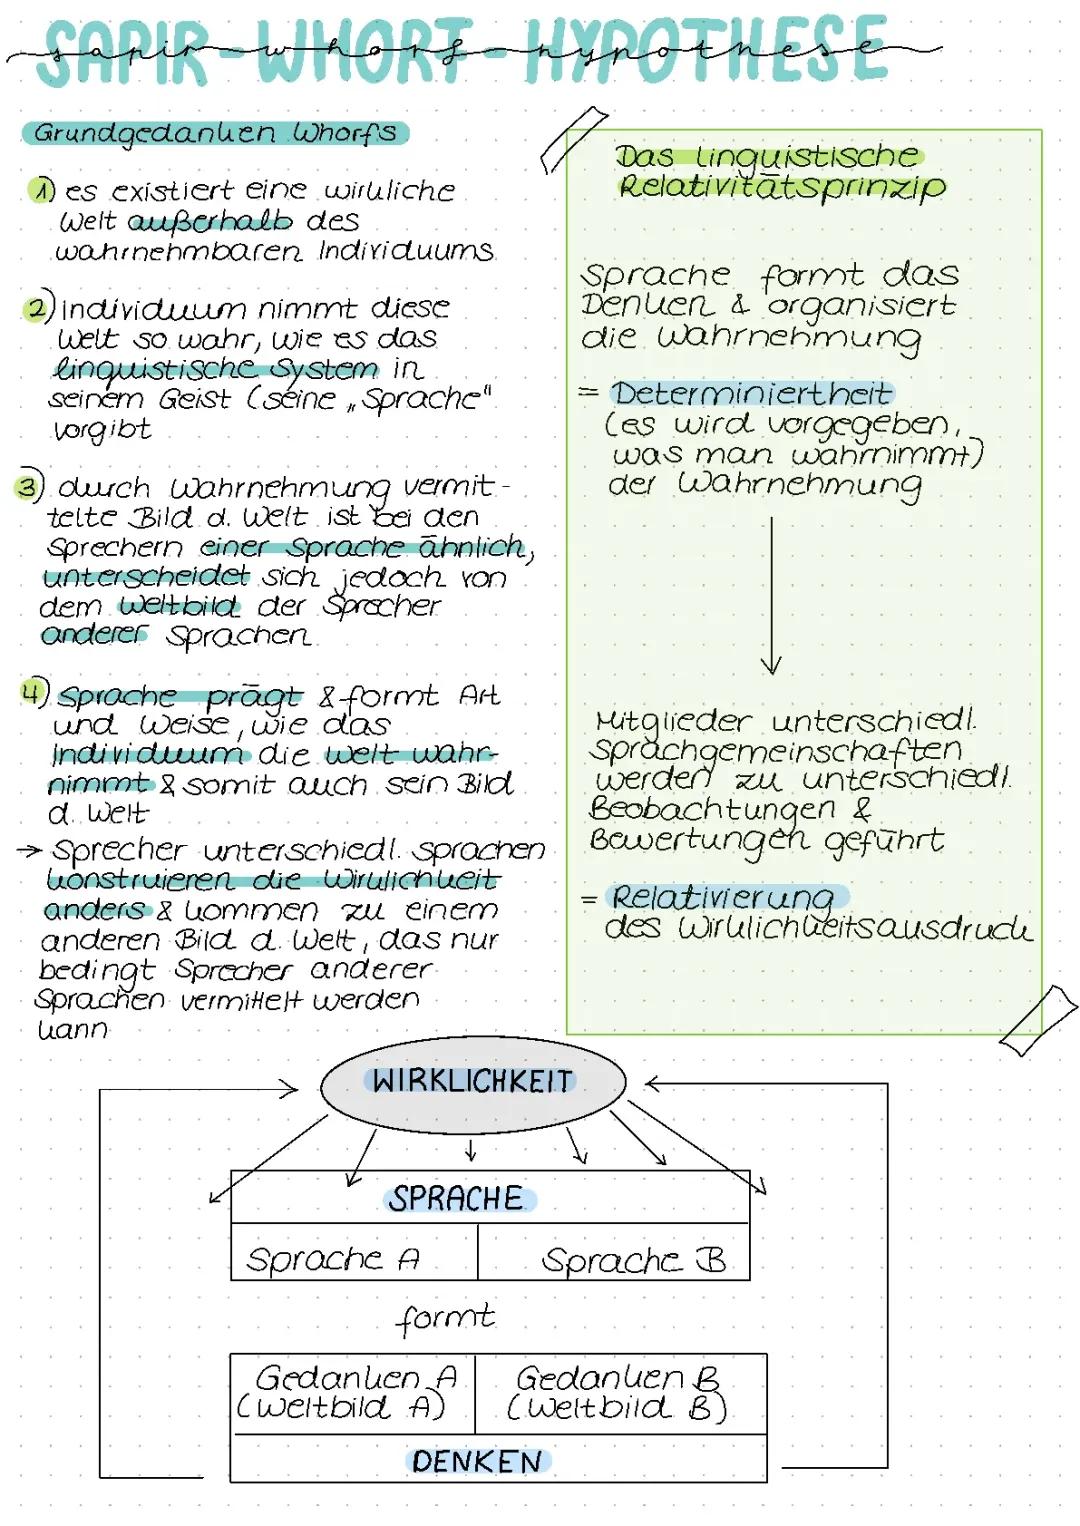 SAPIR-WHORF-HYPOTHESE
sapir-whorf-hypothese
Grundgedanken Whorfs
1) es existiert eine wirkliche
Welt außerhalb des
wahrnehmbaren Individuums
2) individuum nimmt diese
Welt so wahr, wie es das
linguistische System in
seinem Geist (seine „Sprache"
vorgibt
3) durch Wahrnehmung vermit-
telte Bild d. Welt ist bei den
Sprechern einer Sprache ähnlich,
unterscheidet sich jedoch von
dem Weltbild der Sprecher
anderer Sprachen.
4) Sprache prägt & formt Art
und Weise, wie das
Individuum die Welt wahr-
nimmt & somit auch sein Bild
d. Welt
→ Sprecher unterschiedl. sprachen
konstruieren die Wirklichkeit
anders & kommen zu einem
anderen Bild d. Welt, das nur
bedingt Sprecher anderer
Sprachen vermittelt werden
kann
Das linguistische
Relativitätsprinzip
Sprache formt das
Denken & organisiert
die Wahrnehmung
= Determiniertheit
(es wird vorgegeben,
was man wahrnimmt)
der Wahrnehmung
Mitglieder unterschiedl.
Sprachgemeinschaften
werden zu unterschiedl.
Beobachtungen &
Bewertungen geführt
= Relativierung
des Wirklichkeitsausdruck
WIRKLICHKEIT
SPRACHE
Sprache A Sprache B
formt
Gedanken A Gedanken B
(Weltbild A) (Weltbild B)
DENKEN